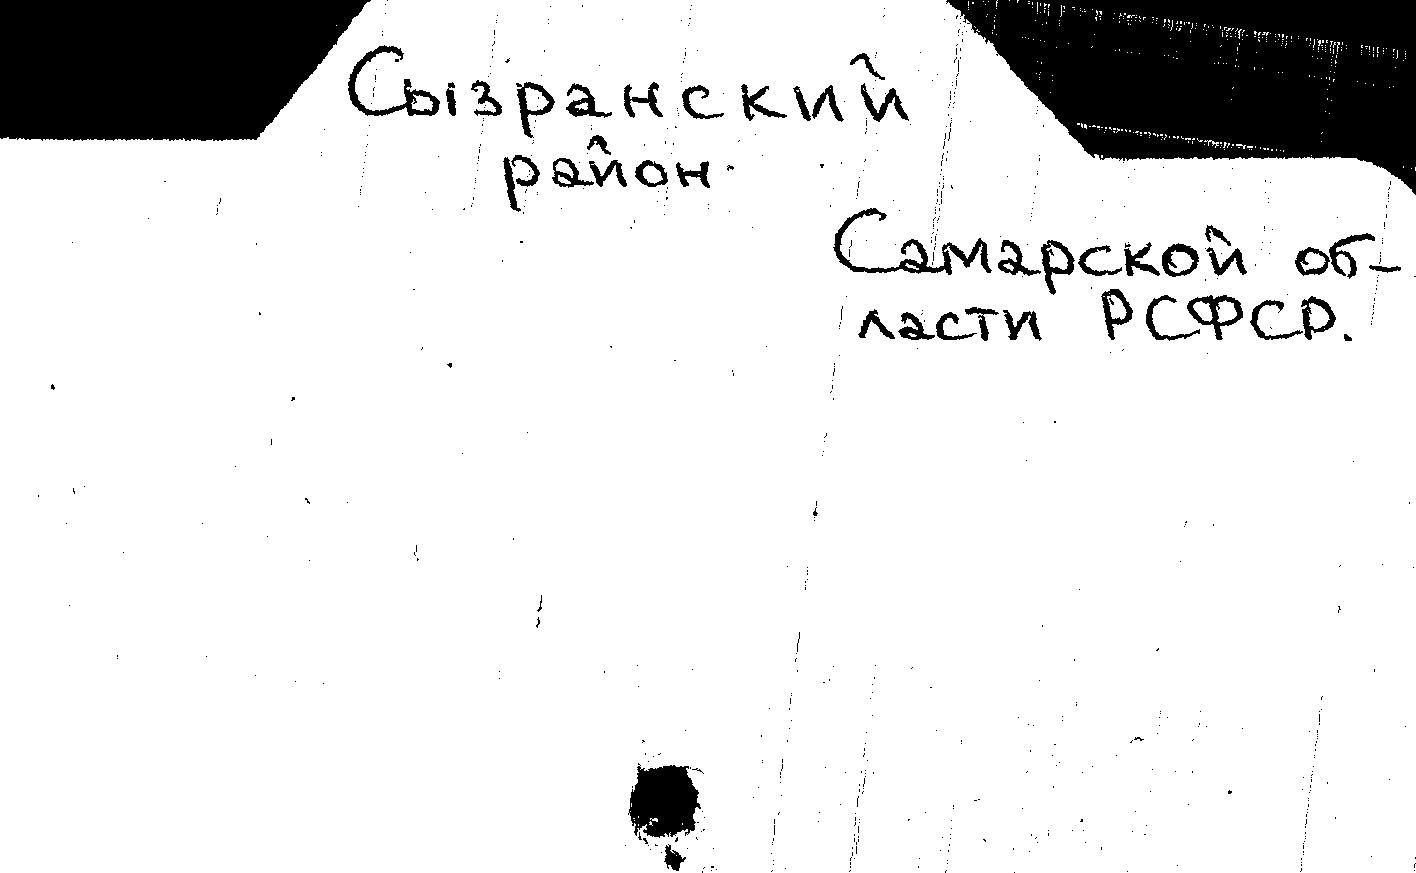 Сызранский
район.
Самарской об-
ласти РСФСР.